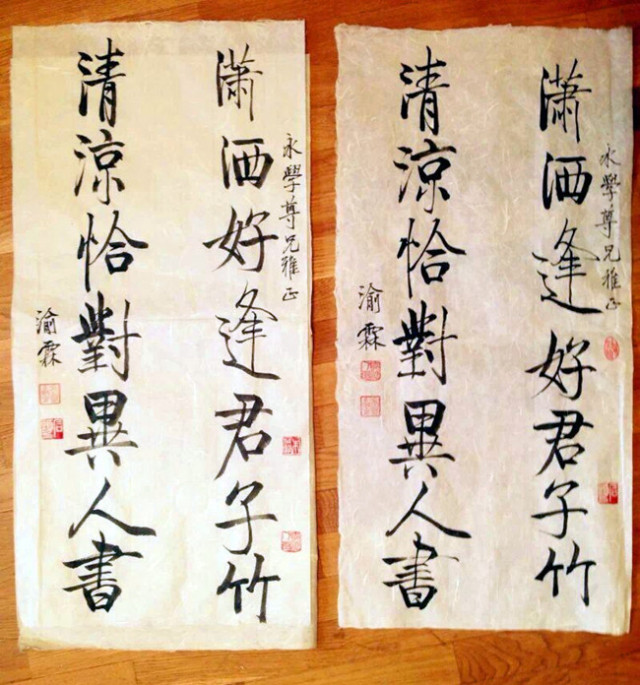 永學尊兄雅正
瀟洒好逢君子竹
清涼恰對異人書
渝霖
永學尊兄雅正
瀟洒逢好君子竹
清涼恰對異人書
渝霖